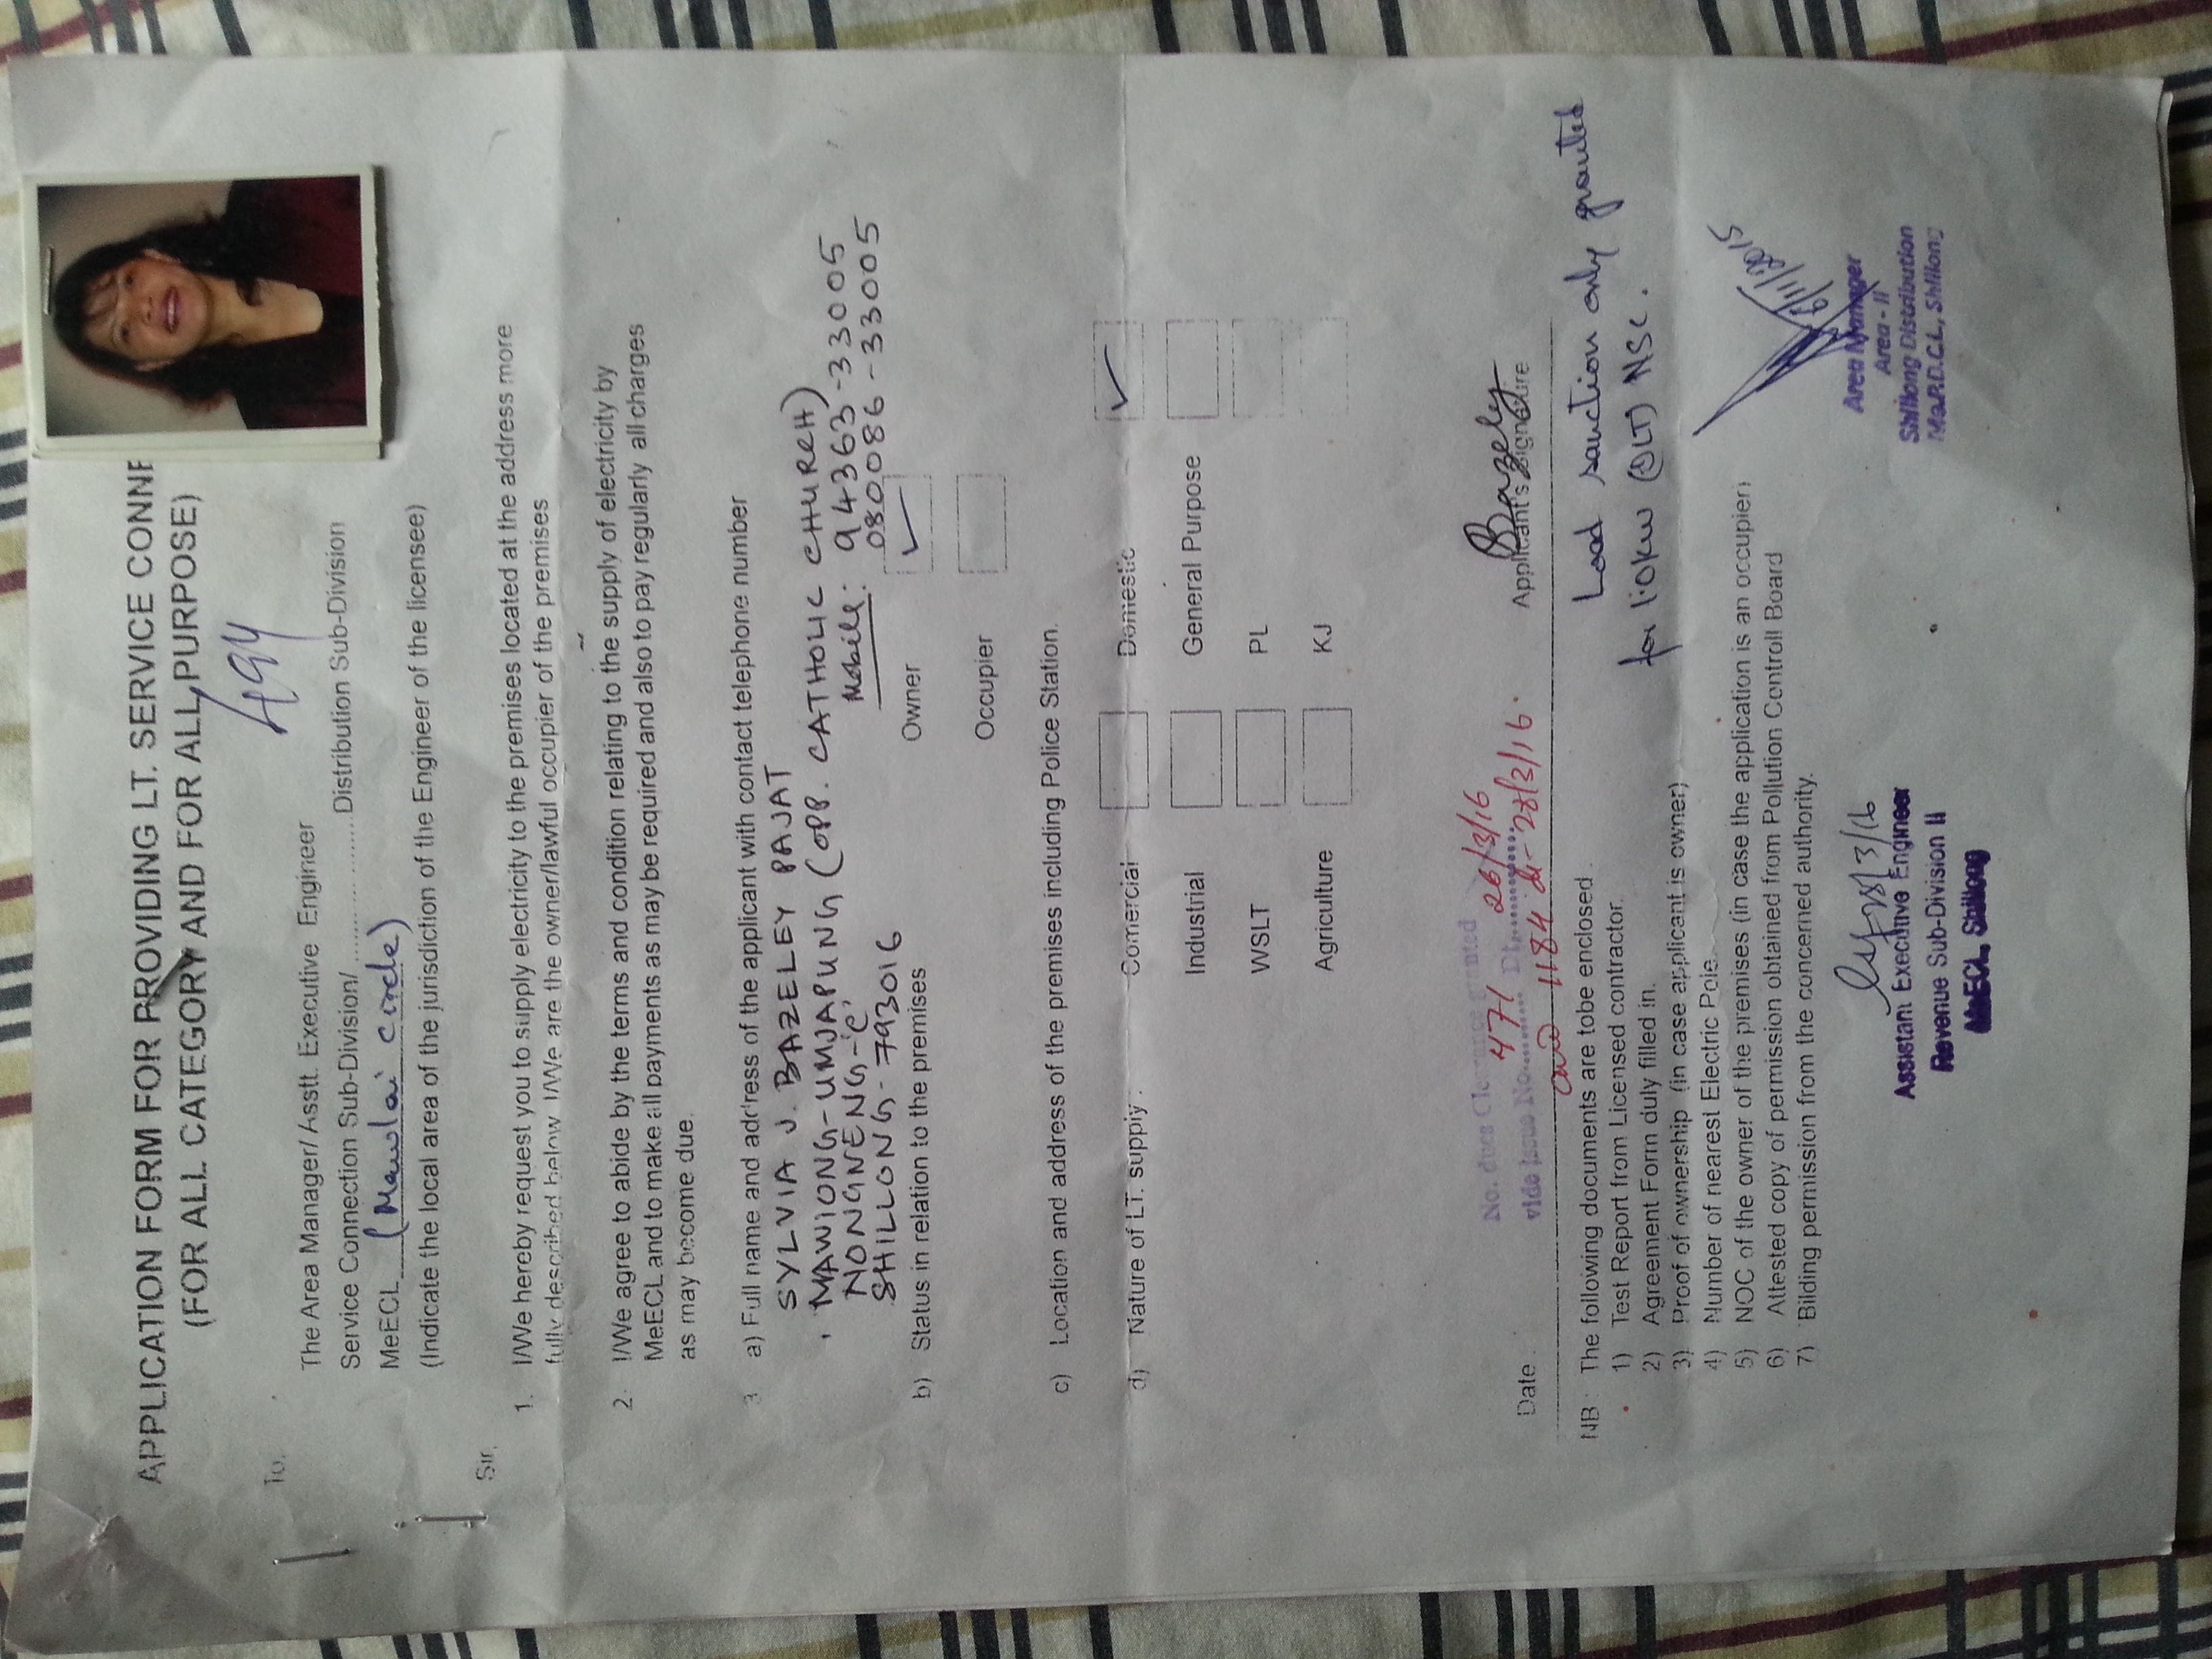 APPLICATION FORM FOR PROVIDING LT. SERVICE CONNE
(FOR ALL CATEGORY AND FOR ALL PURPOSE)
To,
The Area Manager/ Asstt. Executive Engineer
Service Connection Sub-Division/ .................Distribution Sub-Division
MeECL (Mawlai circle)
(Indicate the local area of the jurisdiction of the Engineer of the licensee)
Sir,
1. I/We hereby request you to supply electricity to the premises located at the address more
fully described below I/We are the owner/lawful occupier of the premises
2. I/We agree to abide by the terms and condition relating to the supply of electricity by
MeECL and to make all payments as may be required and also to pay regularly all charges
as may become due
3 a) Full name and address of the applicant with contact telephone number
SYLVIA J. BAZELEY PAJAT
MAWIONG-UMJAPUNG (OPP. CATHOLIC CHURCH)
NONGNENG-'C', Mobile: 94363-33005
SHILLONG-793016 080086-33005
b) Status in relation to the premises Owner ✓
Occupier
c) Location and address of the premises including Police Station.
d) Nature of LT. supply: Comercial Domestic ✓
Industrial General Purpose
WSLT PL
Agriculture KJ
No. dues Clearance granted
471 26/3/16
vide Issue No............ Dt............
1184 dt-28/3/16.
Bazeley
Date Applicant's Signature
NB : The following documents are tobe enclosed
1) Test Report from Licensed contractor.
2) Agreement Form duly filled in.
3) Proof of ownership (in case applicant is owner)
4) Number of nearest Electric Pole
5) NOC of the owner of the premises (in case the application is an occupier)
6) Attested copy of permission obtained from Pollution Controll Board
7) Bilding permission from the concerned authority.
Load sanction only granted
for 1.0KW (DLT) NSC.
6/11/2015
Area Manager
Area - II
Shillong Distribution
M.e.P.D.C.L., Shillong
28/3/16
Assistant Executive Engineer
Revenue Sub-Division II
MeECL, Shillong